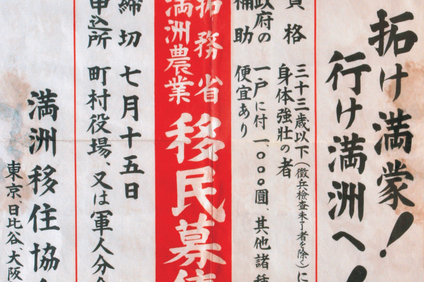 拓け満蒙!
行け満洲へ!
資格
三十三歳以下(徴兵検査未了者を除)に
身体強壮の者
政府の
補助
一戸に付一、〇〇〇圓、其他諸種
便宜あり
拓務省
満洲農業
移民募集
締切 七月十五日
申込所 町村役場、又は軍人分会
満洲移住協会
東京、日比谷、大阪